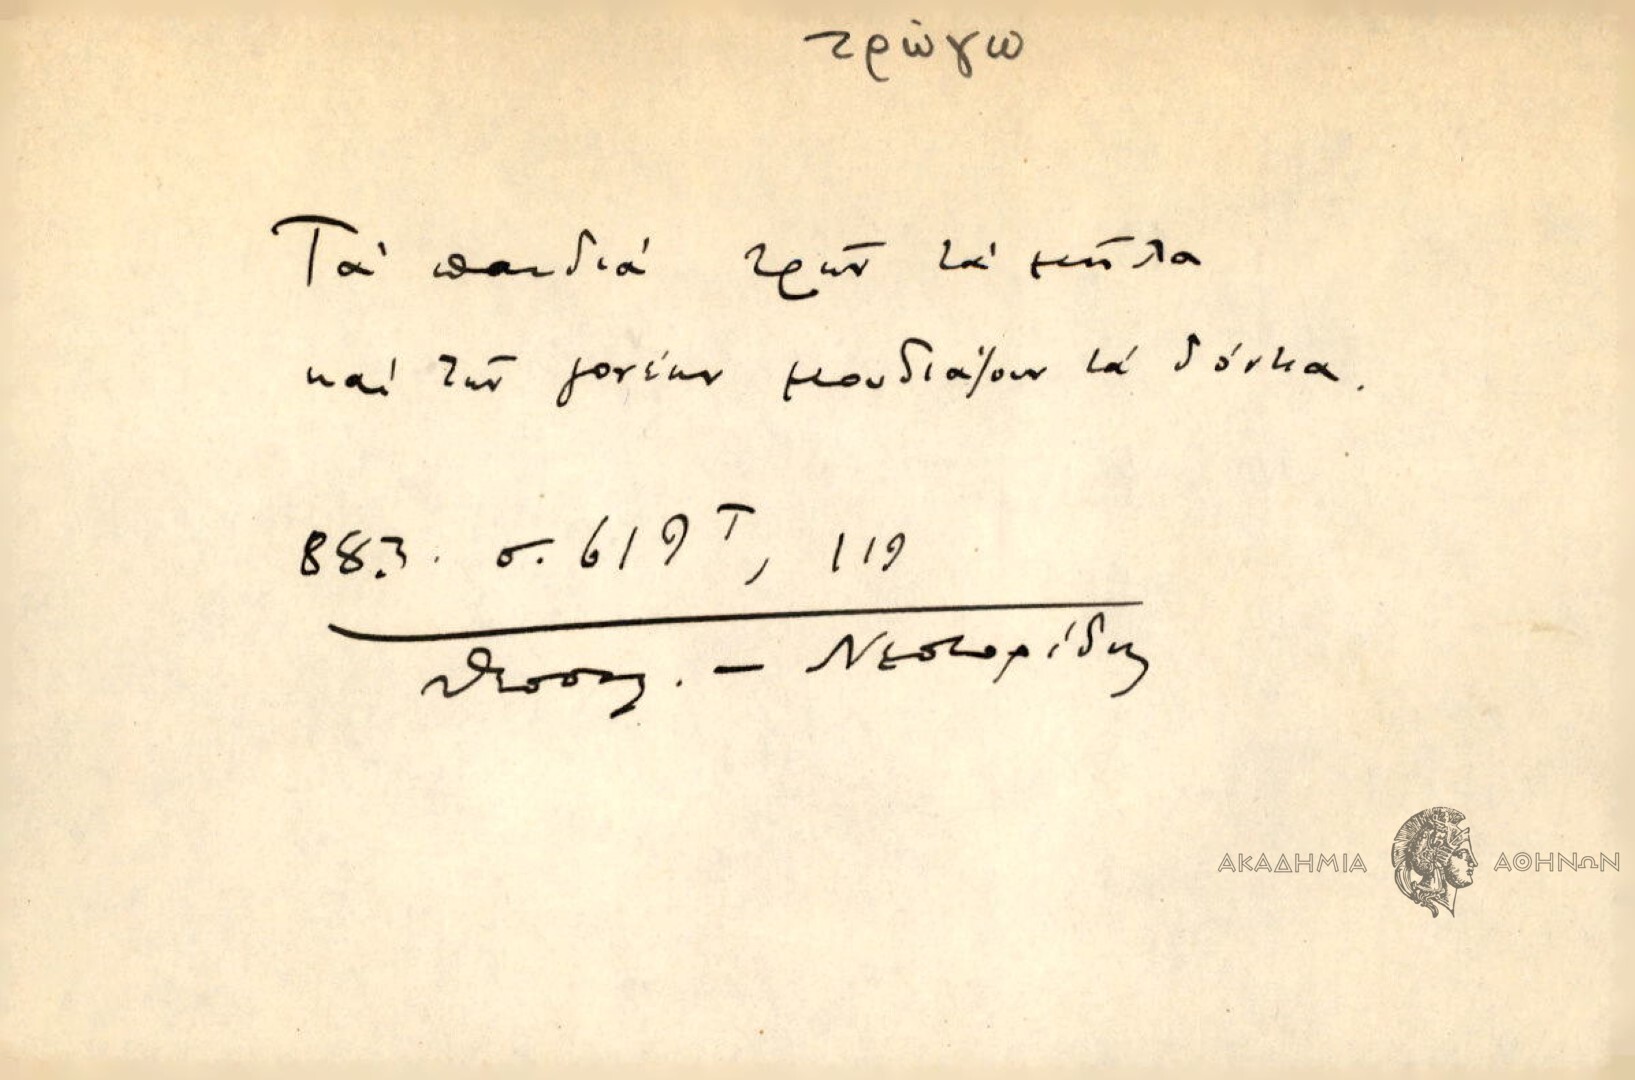 τρώγω
Τά παιδιά τρῶν τά μῆλα
καί τῶν γονέων μουδιάζουν τά δόντια.
883. σ. 619 Τ, 119
Θεσσ. - Νεστορίδης
ΑΚΑΔΗΜΙΑ ΑΘΗΝΩΝ